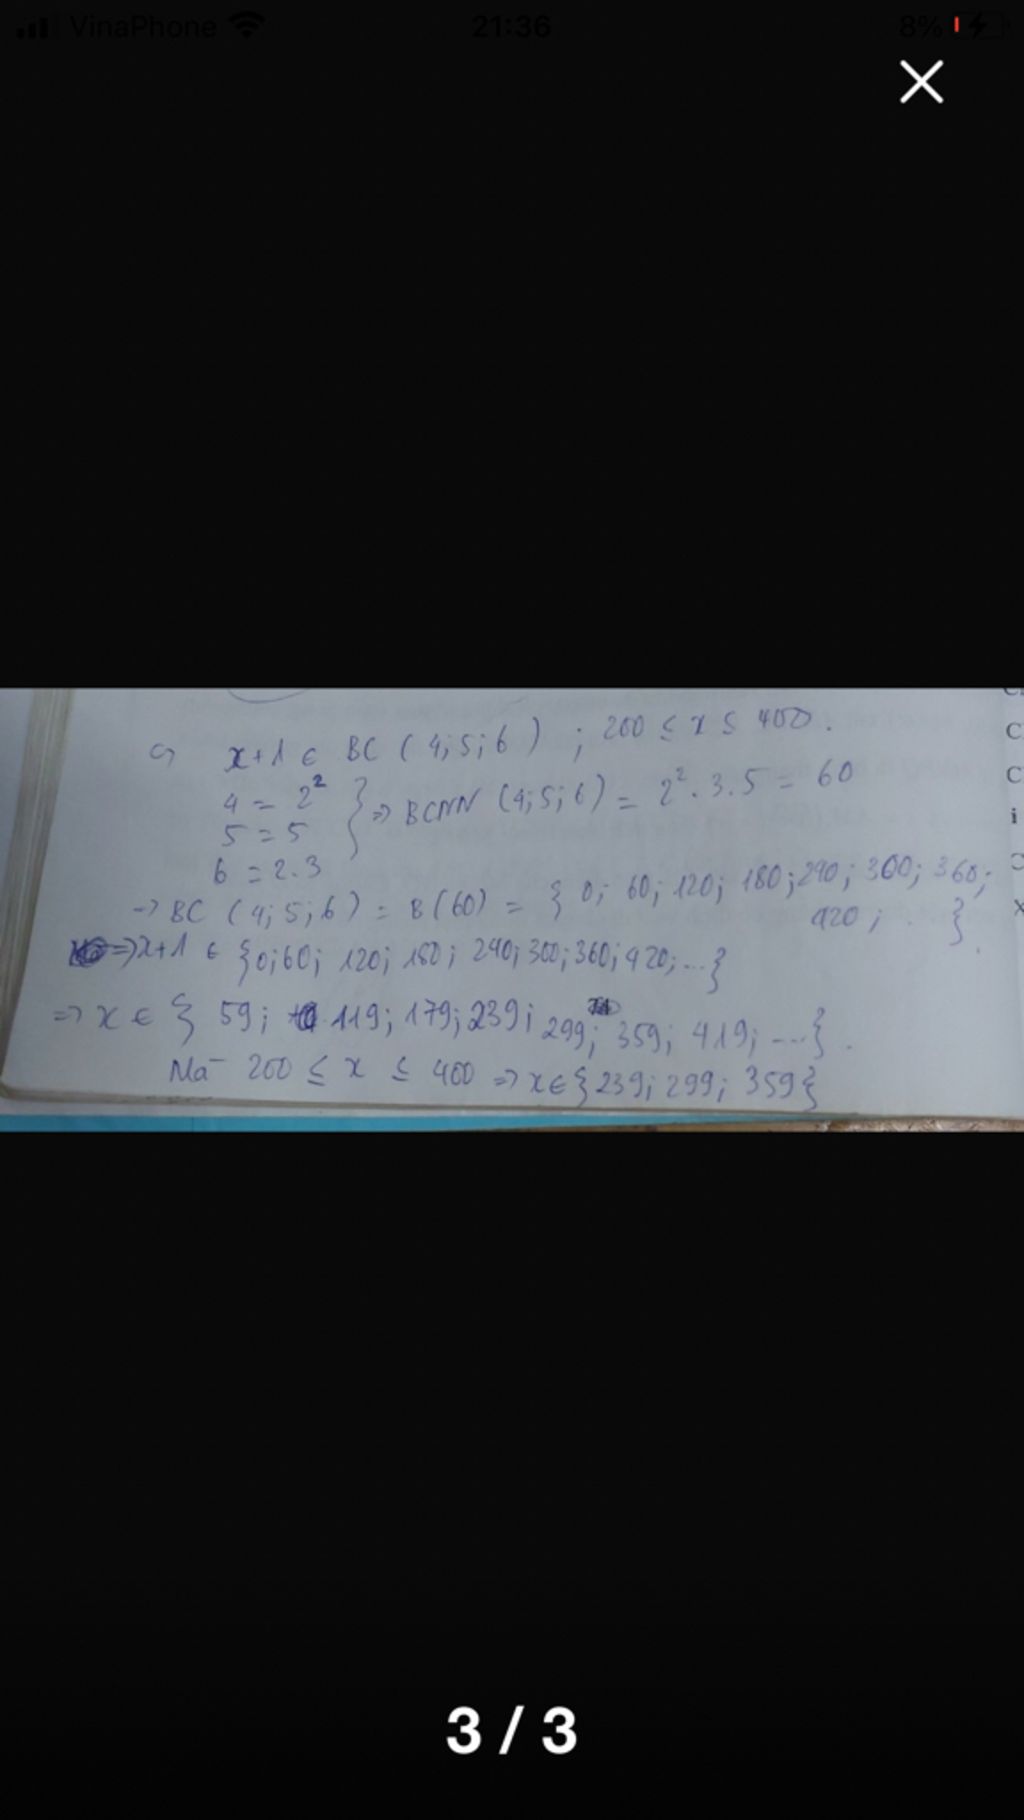 VinaPhone 21:36 8%
c) x+1 ∈ BC (4;5;6) ; 200 ≤ x ≤ 400.
4 = 2²
5 = 5 } => BCNN (4;5;6) = 2².3.5 = 60
6 = 2.3
-> BC (4;5;6) = B(60) = { 0; 60; 120; 180; 240; 300; 360;
420; ...}.
=> x+1 ∈ {0;60; 120; 180; 240; 300; 360; 420; ...}
=> x ∈ { 59; 119; 179; 239; 299; 359; 419; ...}.
Mà 200 ≤ x ≤ 400 => x ∈ {239; 299; 359}
C
C
i
C
X
3 / 3